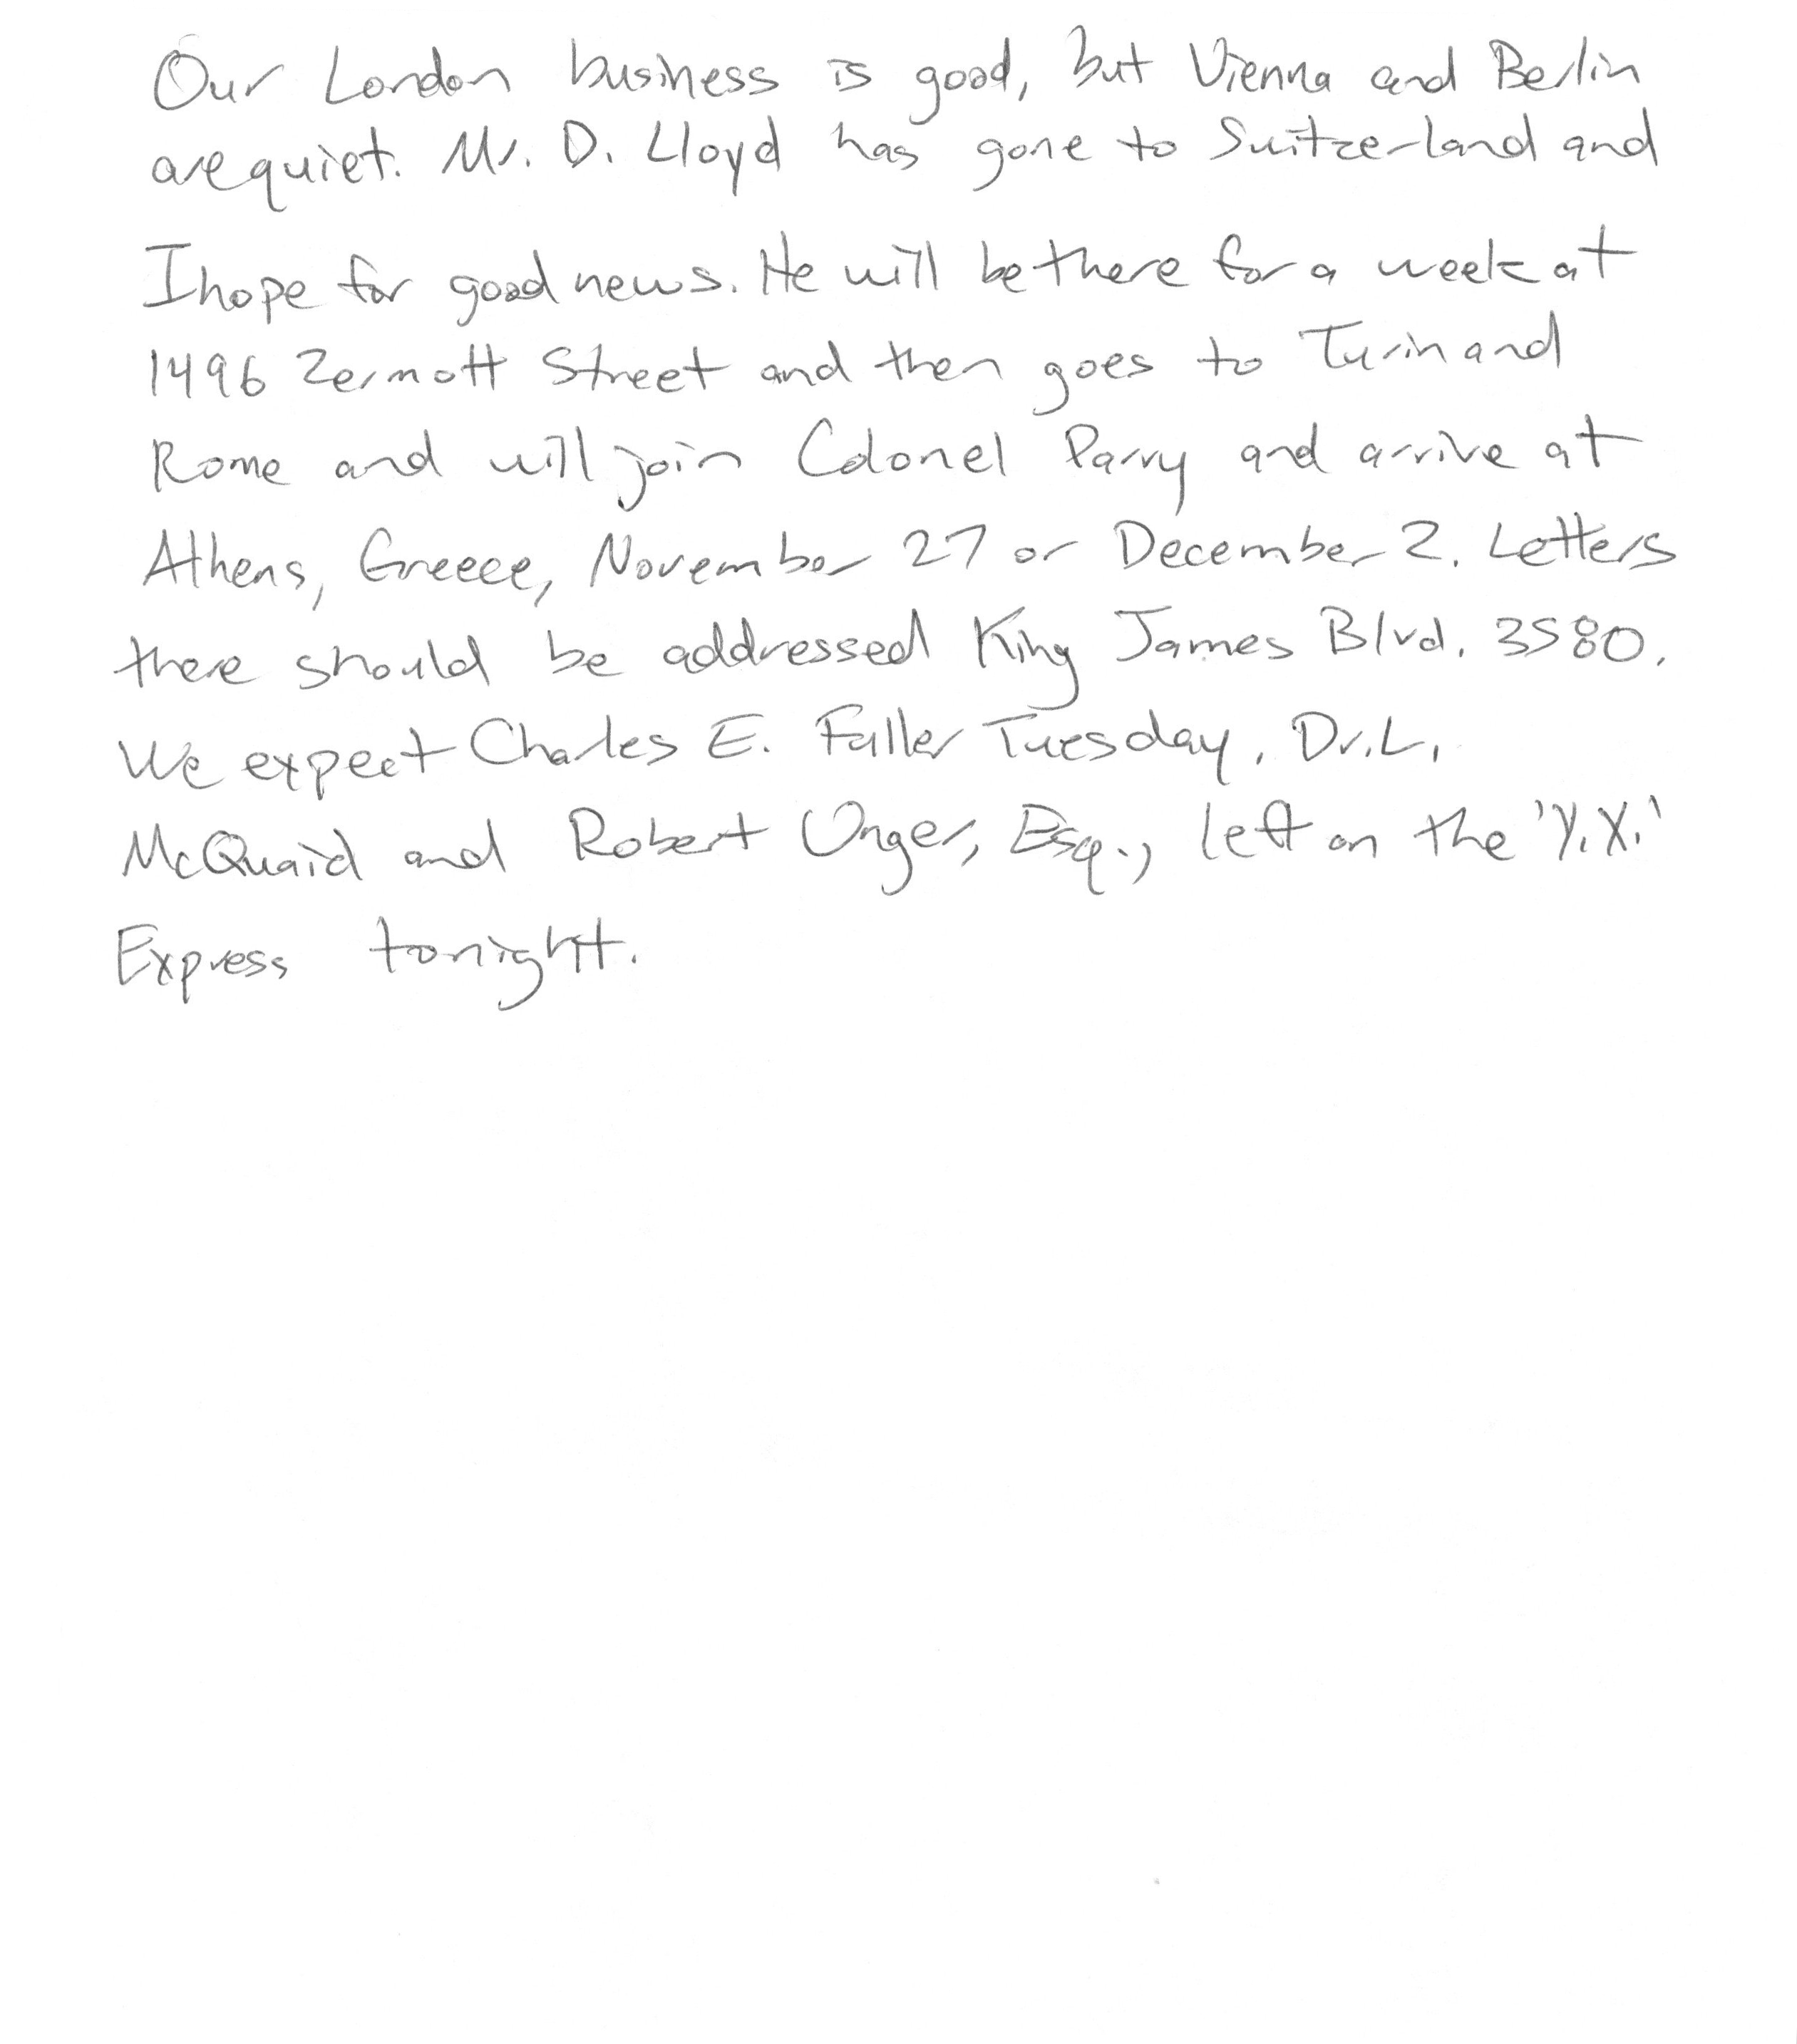 Our London business is good, but Vienna and Berlin
are quiet. Mr. D. Lloyd has gone to Switzerland and
I hope for good news. He will be there for a week at
1496 Zermott Street and then goes to Turin and
Rome and will join Colonel Parry and arrive at
Athens, Greece, November 27 or December 2. Letters
there should be addressed King James Blvd. 3580.
We expect Charles E. Fuller Tuesday. Dr. L.
McQuaid and Robert Unger, Esq., left on the 'Y.X.'
Express tonight.